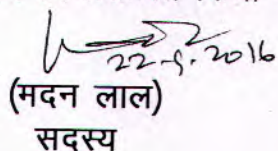 22-9-2016
(मदन लाल)
सदस्य